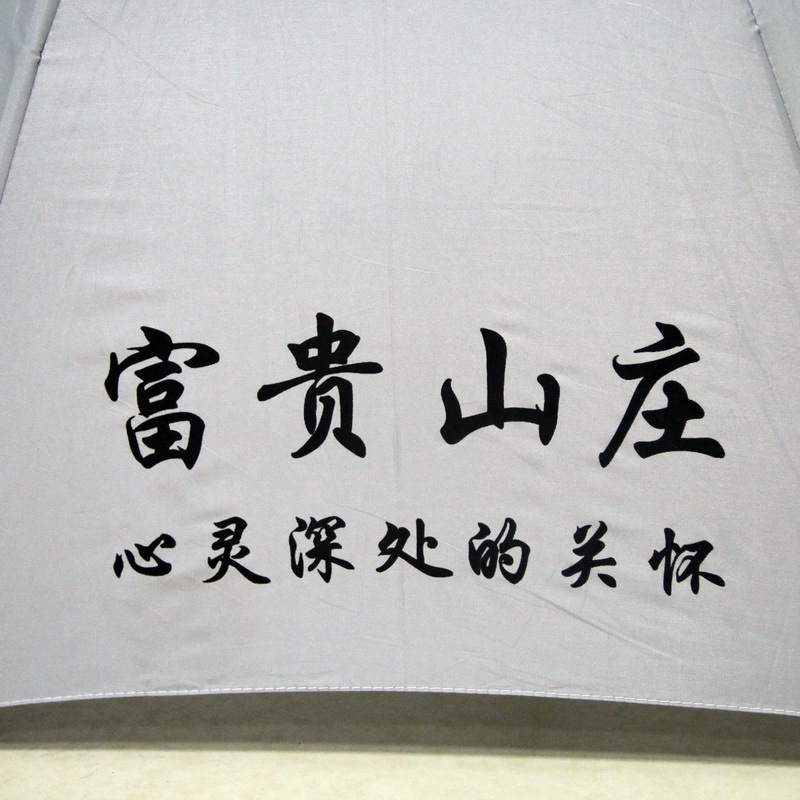 富贵山庄
心灵深处的关怀